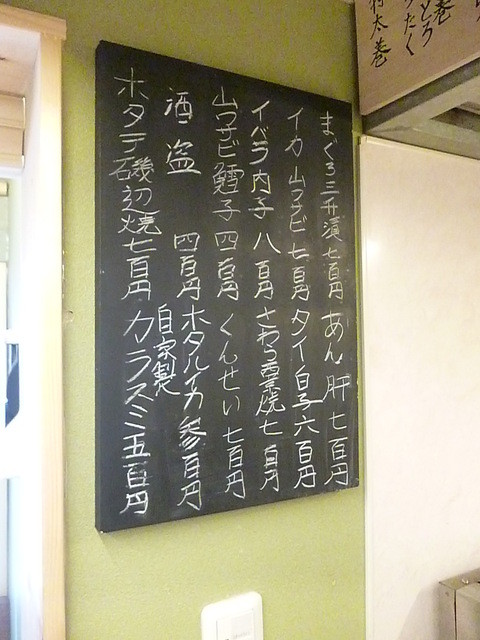 巻
とろ
たく
太巻
まぐろ三升漬七百円 あん肝七百円
イカ山ワサビ七百円 タイ白子六百円
イバラ内子八百円 さわら西京焼七百円
山ワサビ鱈子四百円 くんせい七百円
酒盗 四百円 ホタルイカ参百円
自家製
ホタテ磯辺焼七百円 カラスミ五百円